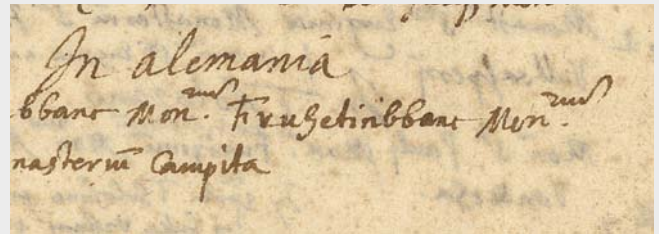 In alemania
bbanc Mon.rius Fruhetinbbanc Mon.rius
nasteriū Campita